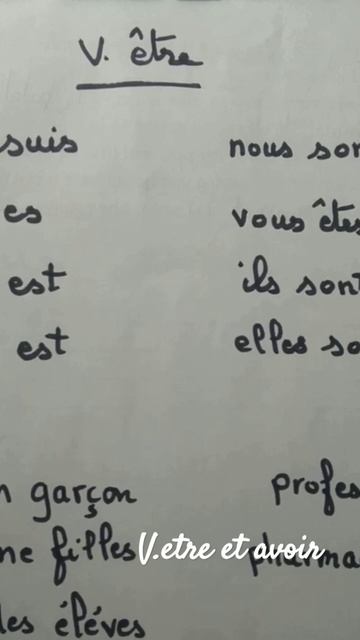 V. être
suis nous son
es vous êtes
est ils sont
est elles so
n garçon profes
ne filles pharma
les éléves
V.etre et avoir